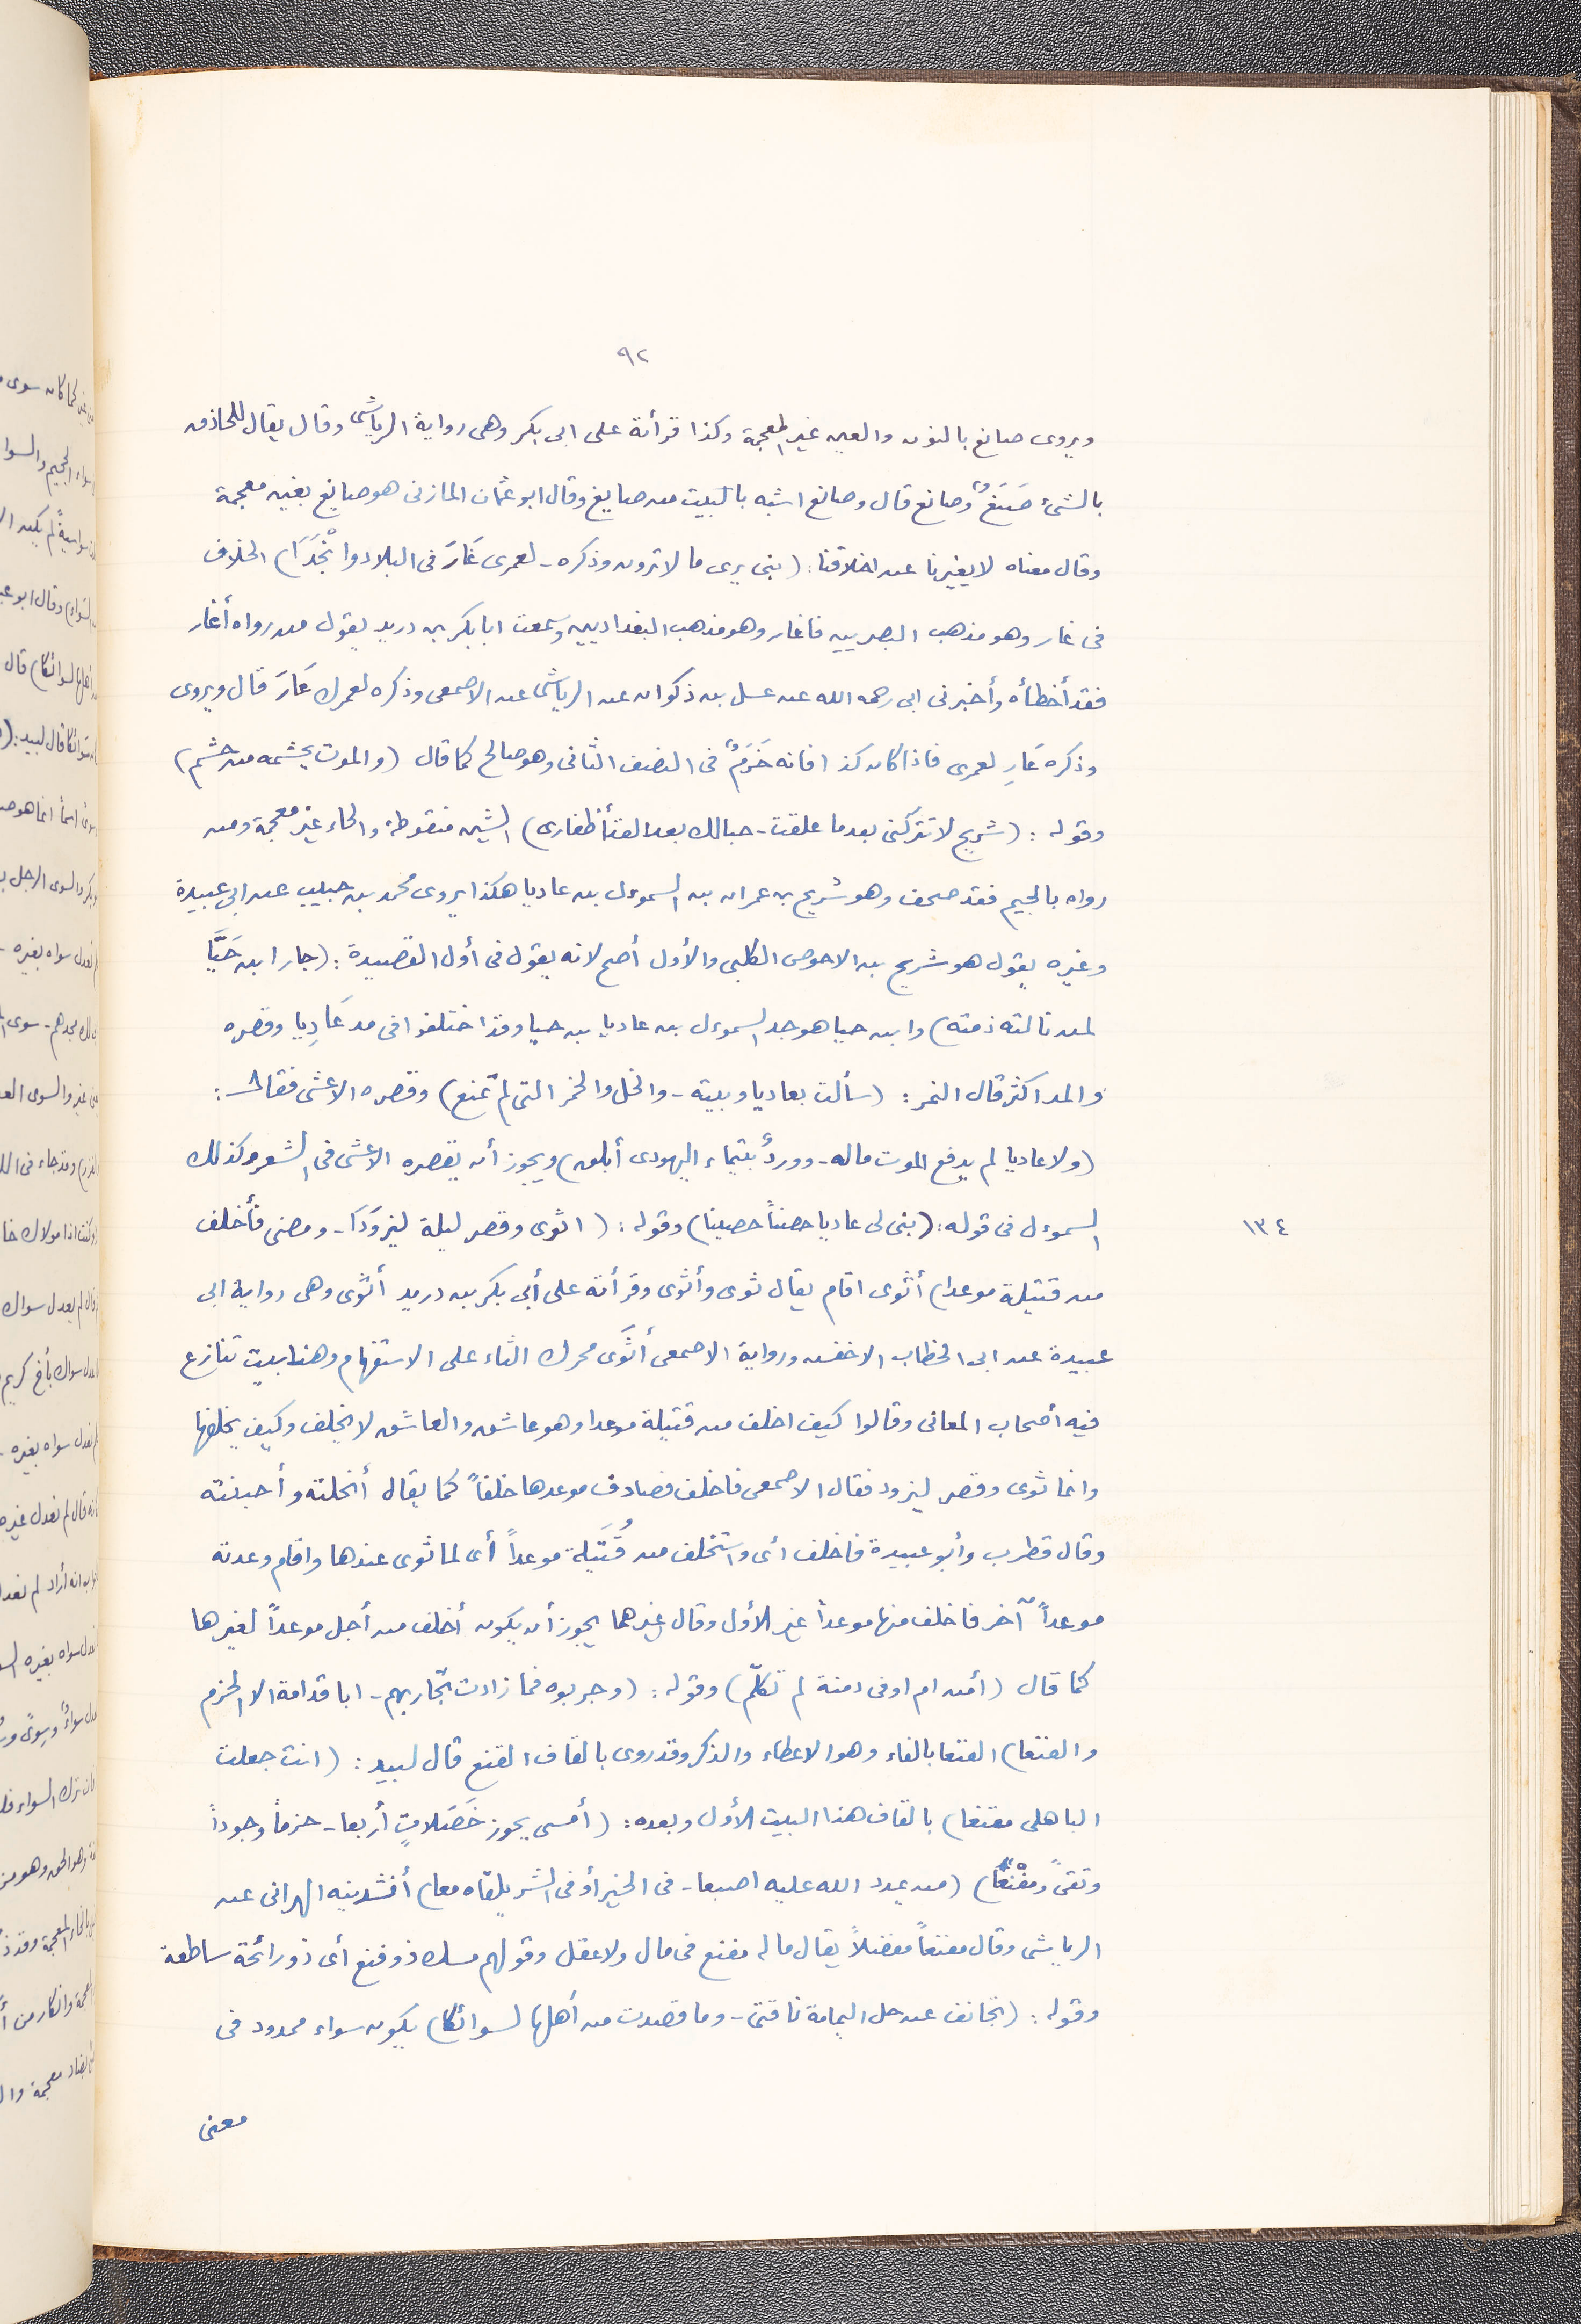 ٩٢
ويروى صانع بالنون والعين غير المعجمة وكذا قرأته على ابى بكر وهى رواية الرياشى وقال يقال للحاذق
بالشئ صَنَعٌ وصانع قال وصانع اشبه بالبيت من صايغ وقال ابو عثمان المازنى هو صايغ بغين معجمة
وقال معناه لا يغيرنا عن اخلاقنا: (نبى يرى ما لا ترون وذكره - لعمرى غَارَ فى البلاد وانْجَدَا) الخلاف
فى غار وهو مذهب البصريين فاغار وهو مذهب البغداديين وسمعت ابا بكر بن دريد يقول من رواه أغار
فقد أخطأه وأخبرنى ابى رحمه الله عن عسل بن ذكوان عن الرياشى عن الاصمعى وذكره لعمرك غَارَ قال ويروى
وذكره غَارِ لعمرى فاذا كان كذا فانه خَرَمٌ فى النصف الثانى وهو صالح كما قال (والموت يجشمه من جشم)
وقوله: (شريح لا تتركنى بعدما علقت - حبالك بعد القد أظفارى) الشين منقوطة والحاء غير معجمة ومن
رواه بالجيم فقد صحف وهو شريح بن عمران بن السموءل بن عاديا هكذا يروى محمد بن حبيب عن ابى عبيدة
وغيره يقول هو شريح بن الاحوص الكلبى والأول أصح لانه يقول فى أول القصيدة: (جار ابن حَيَّا
لمن نالته ذمته) وابن حيا هو جد السموءل بن عاديا بن حيا وقد اختلفوا فى مد عَادِيا وقصره
والمد اكثر قال النمر: (سألت بعاديا وبيته - والخل والخمر التى لم تمنع) وقصره الاعشى فقال:
(ولا عاديا لم يدفع الموت ماله - ووردٌ بتيماء اليهودى أبلق) ويجوز أن يقصره الاعشى فى الشعر وكذلك
السموءل فى قوله: (بنى لى عاديا حصناً حصينا) وقوله: (اثوى وقصر ليلة ليزوَدَا - ومضى فأخلف
١٣٤
من قتيلة موعدا) أثوى اقام يقال ثوى وأثوى وقرأته على أبى بكر بن دريد أثْوى وهى رواية ابى
عبيدة عن ابى الخطاب الاخفش ورواية الاصمعى أَثَوَى محرك الثاء على الاستفهام وهنا بيت تنازع
فيه أصحاب المعانى وقالوا كيف اخلف من قتيلة موعدا وهو عاشق والعاشق لا يخلف وكيف يخلفها
وانما ثوى وقصر ليزود فقال الاصمعى فاخلف فصادف موعدها خلفاً كما يقال أبخلته وأجبنته
وقال قطرب وأبو عبيدة فاخلف أى واستخلف من قُتَيلة موعداً أى لما ثوى عندها واقام وعدته
موعداً آخر فاخلف منها موعداً غير الأول وقال غيرهما يجوز أن يكون أخلف من أجل موعداً لغيرها
كما قال (أمن ام اوفى دمنة لم تكلّم) وقوله: (وجربوه فما زادت تجاربهم - ابا قدامة الا الحزم
والفنعا) الفنعا بالفاء وهو الاعطاء والذكر وقد روى بالقاف القنع قال لبيد: (انت جعلت
الباهلى مقنعا) بالقاف هذا البيت الأول وبعده: (أمسى يحوز خَصَلاتٍ أربعا - حزماً وجوداً
وتقىً ومفْنَعَا) (من يمدد الله عليه اصبعا - فى الخير أو فى الشر يلقاه معا) أنشدنيه الهزانى عن
الرياشى وقال مفنعاً مفضلاً يقال ماله مفنع فى مال ولا عقل وقولهم مسك ذو فنع أى ذو رائحة ساطعة
وقوله: (تجانف عن جل اليمامة ناقتى - وما قصدت من أهلها لسوائكا) يكون سواء ممدود فى
معنى